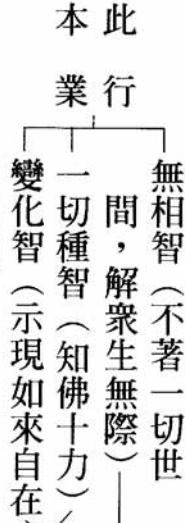 此行
本業
無相智（不著一切世
間，解衆生無際）
一切種智（知佛十力）
變化智（示現如來自在